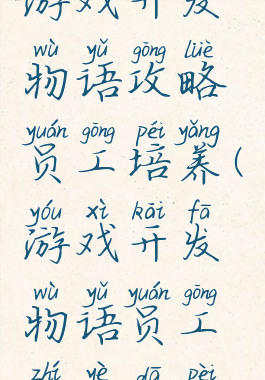 游戏开发
wù yǔ gōng lüè
物语攻略
yuán gōng péi yǎng
员工培养(
yóu xì kāi fā
游戏开发
wù yǔ yuán gōng
物语员工
zhí yè dā pèi